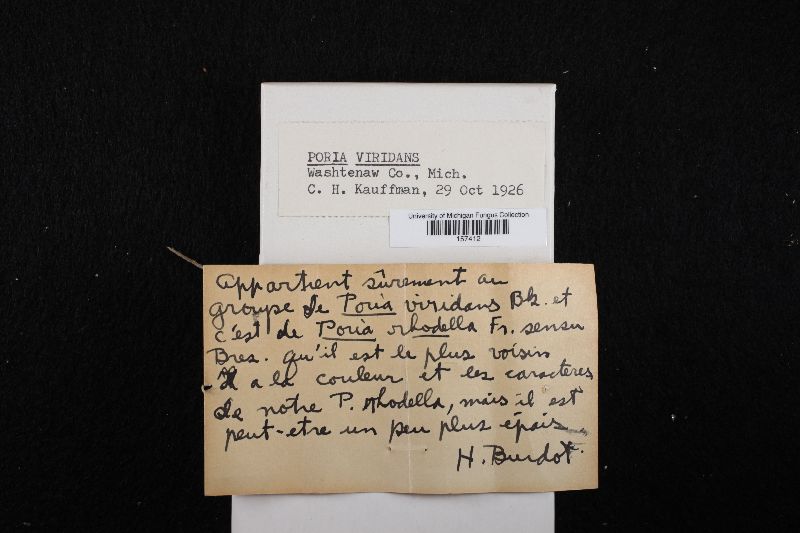 PORIA VIRIDANS
Washtenaw Co., Mich.
C. H. Kauffman, 29 Oct 1926
University of Michigan Fungus Collection
157412
Appartient sûrement au
groupe de Poria viridans Bk. et
c'est de Poria rhodella Fr. sensu
Bres. qu'il est le plus voisin
- Il a la couleur et les caractères
de notre P. rhodella, mais il est
peut-etre un peu plus épais.
H. Burdot.